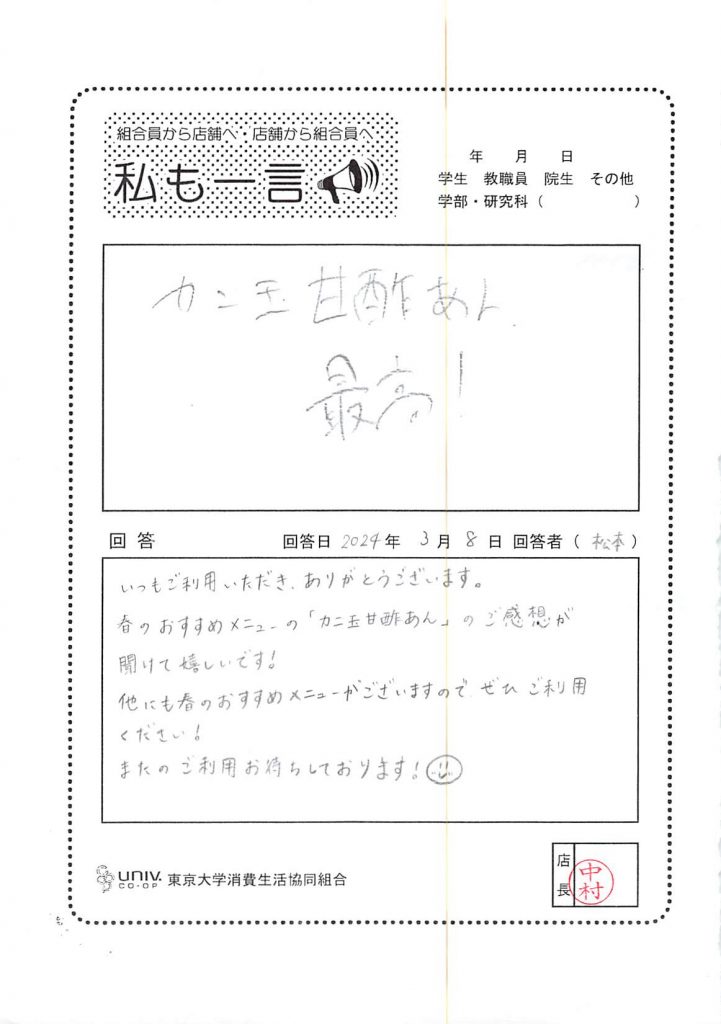 組合員から店舗へ・店舗から組合員へ
私も一言
年 月 日
学生 教職員 院生 その他
学部・研究科（ ）
カニ玉甘酢あん
最高！
回答 回答日 2024年 3月 8日 回答者（松本）
いつもご利用いただき、ありがとうございます。
春のおすすめメニューの「カニ玉甘酢あん」のご感想が
聞けて嬉しいです！
他にも春のおすすめメニューがございますので、ぜひご利用
ください！
またのご利用お待ちしております！
UNIV. CO-OP 東京大学消費生活協同組合
店長 中村